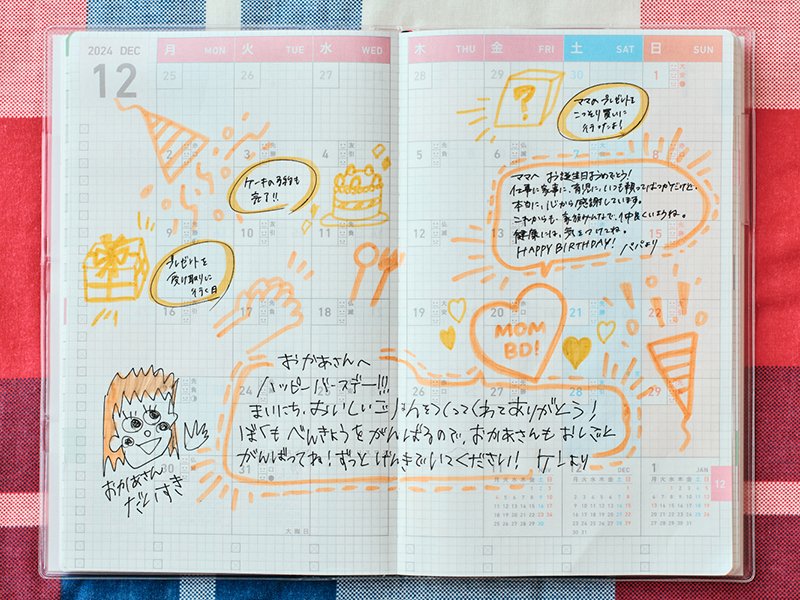 2024 DEC
12
月 MON
火 TUE
水 WED
木 THU
金 FRI
土 SAT
日 SUN
25
26
27
28
29
30
1
2
3
4
5
6
7
8
9
10
11
12
13
14
15
16
17
18
19
20
21
22
23
24
25
26
27
28
29
30
31
大晦日
?
ママのプレゼントを
こっそり買いに
行ったよ!
ケーキの予約も
完了!!
プレゼントを
受け取りに
行く日
ママへ お誕生日おめでとう!
仕事に家事に、育児に、いつも頼ってばっかだけど、
本当に、心から感謝しています。
これからも、家族みんなで、仲良くいようね。
健康には、気をつけてね。
HAPPY BIRTHDAY! パパより
MOM
BD!
おかあさんへ
ハッピーバースデー!!!
まいにち、おいしいごはんをつくってくれてありがとう!
ぼくも べんきょうをがんばるので、おかあさんも おしごと
がんばってね!ずっとげんきでいてください! ケーより
おかあさん
だいすき
11 NOV
12 DEC
1 JAN
12